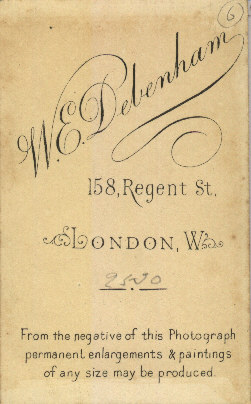 6
W.E. Debenham
158, Regent St.
London, W.
From the negative of this Photograph
permanent enlargements & paintings
of any size may be produced.